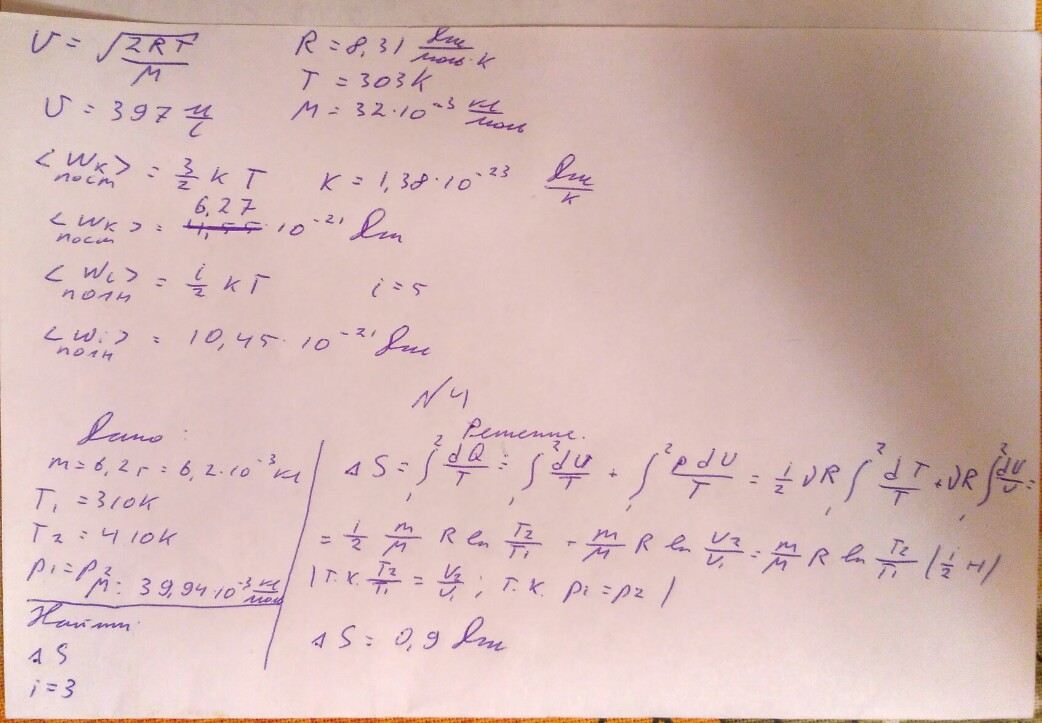 υ = √(2RT/M)    R = 8,31 Дж/(моль·К)
T = 303К
υ = 397 м/с    M = 32·10⁻³ кг/моль
<Wк> пост = 3/2 k T    K = 1,38·10⁻²³ Дж/К
<Wк> пост = 6,27 ·10⁻²¹ Дж
<Wi> полн = i/2 kT    i=5
<Wi> полн = 10,45·10⁻²¹ Дж
№4
Дано:
m=6,2г=6,2·10⁻³кг
T₁ =310К
T₂ = 410К
p₁=p₂
M: 39,94·10⁻³ кг/моль
Найти:
ΔS
i=3
Решение.
ΔS = ∫₁² dQ/T = ∫₁² dU/T + ∫₁² pdV/T = i/2 νR ∫₁² dT/T + νR ∫₁² dV/V =
= i/2 m/M R ln T₂/T₁ + m/M R ln V₂/V₁ = m/M R ln T₂/T₁ (i/2 +1)
(т.к. T₂/T₁ = V₂/V₁ ; т.к. p₁=p₂)
ΔS = 0,9 Дж